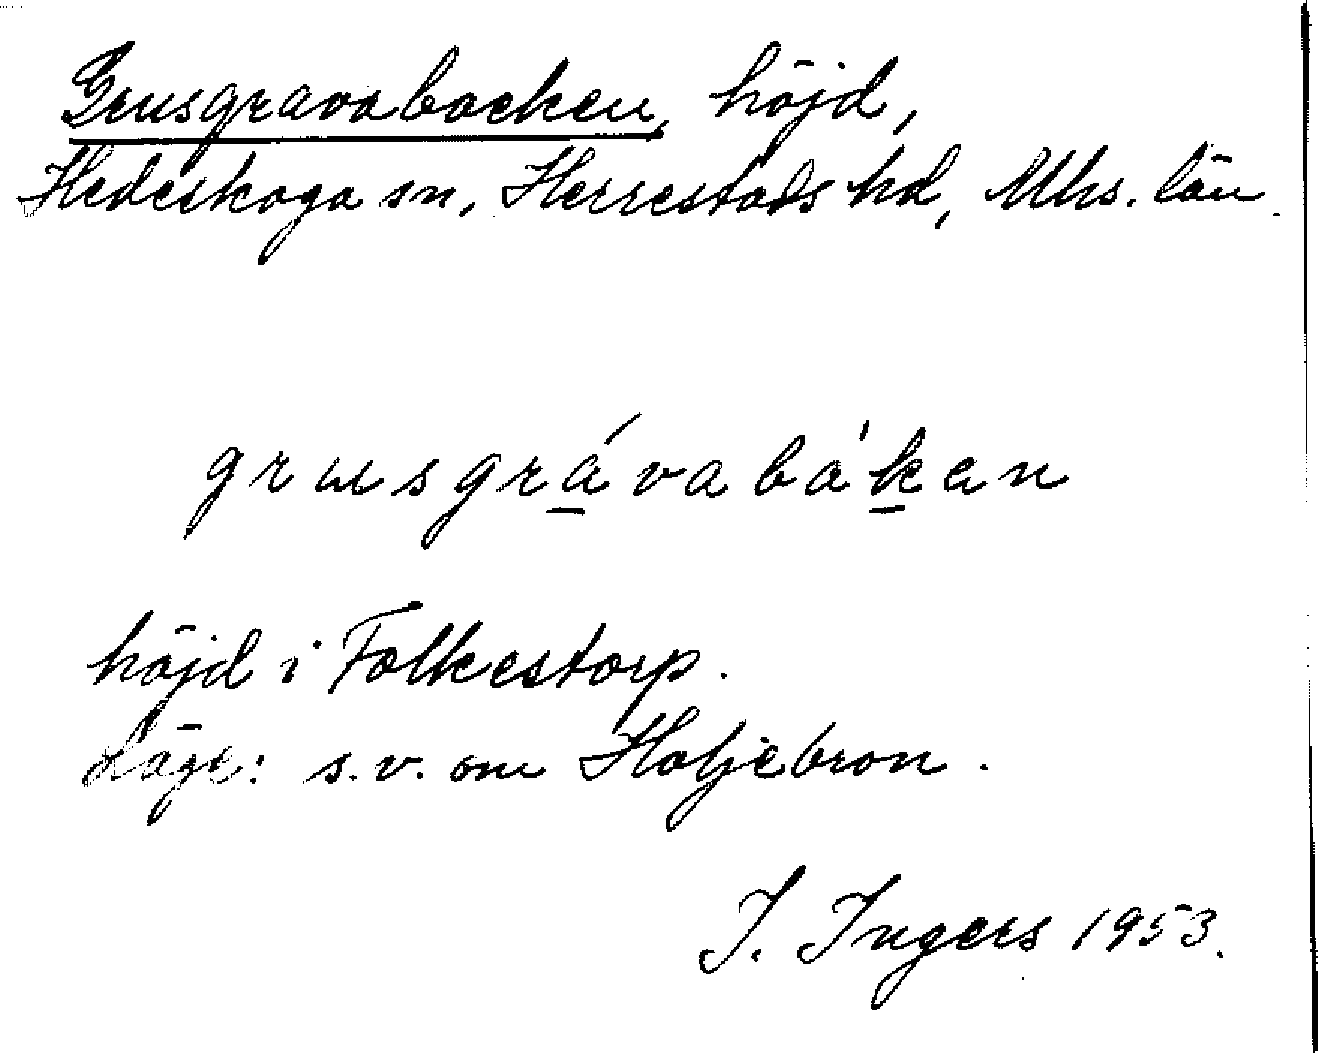 Grusgravabacken, höjd,
Hedeskoga sn, Herrestads hd, Mhs. län.
grusgrávabáken
höjd i Folkestorp.
Läge: s.v. om Höljebron.
I. Ingers 1953.